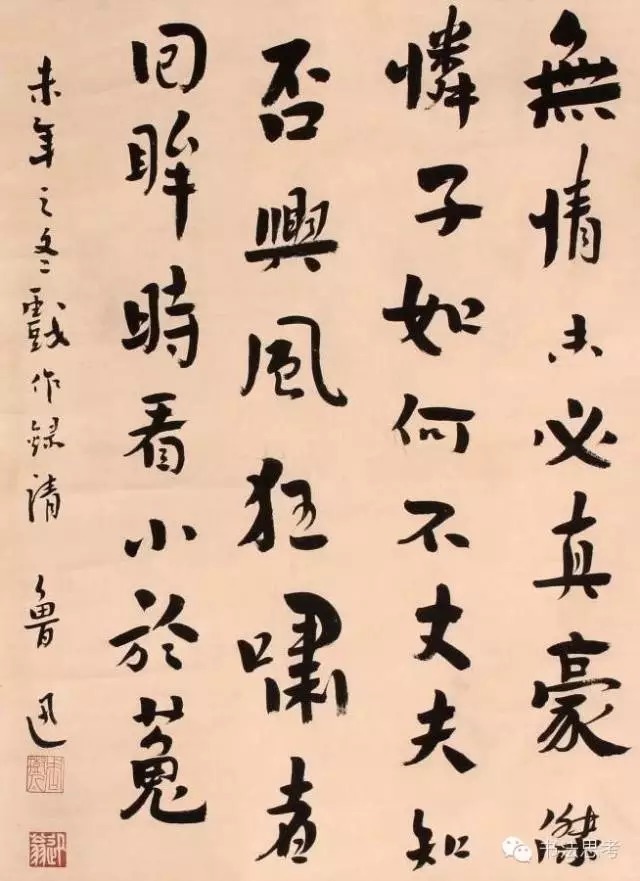 無情未必真豪傑
憐子如何不丈夫知
否興風狂嘯者
回眸時看小於菟
未年之冬戲作錄請
魯迅
书法思考